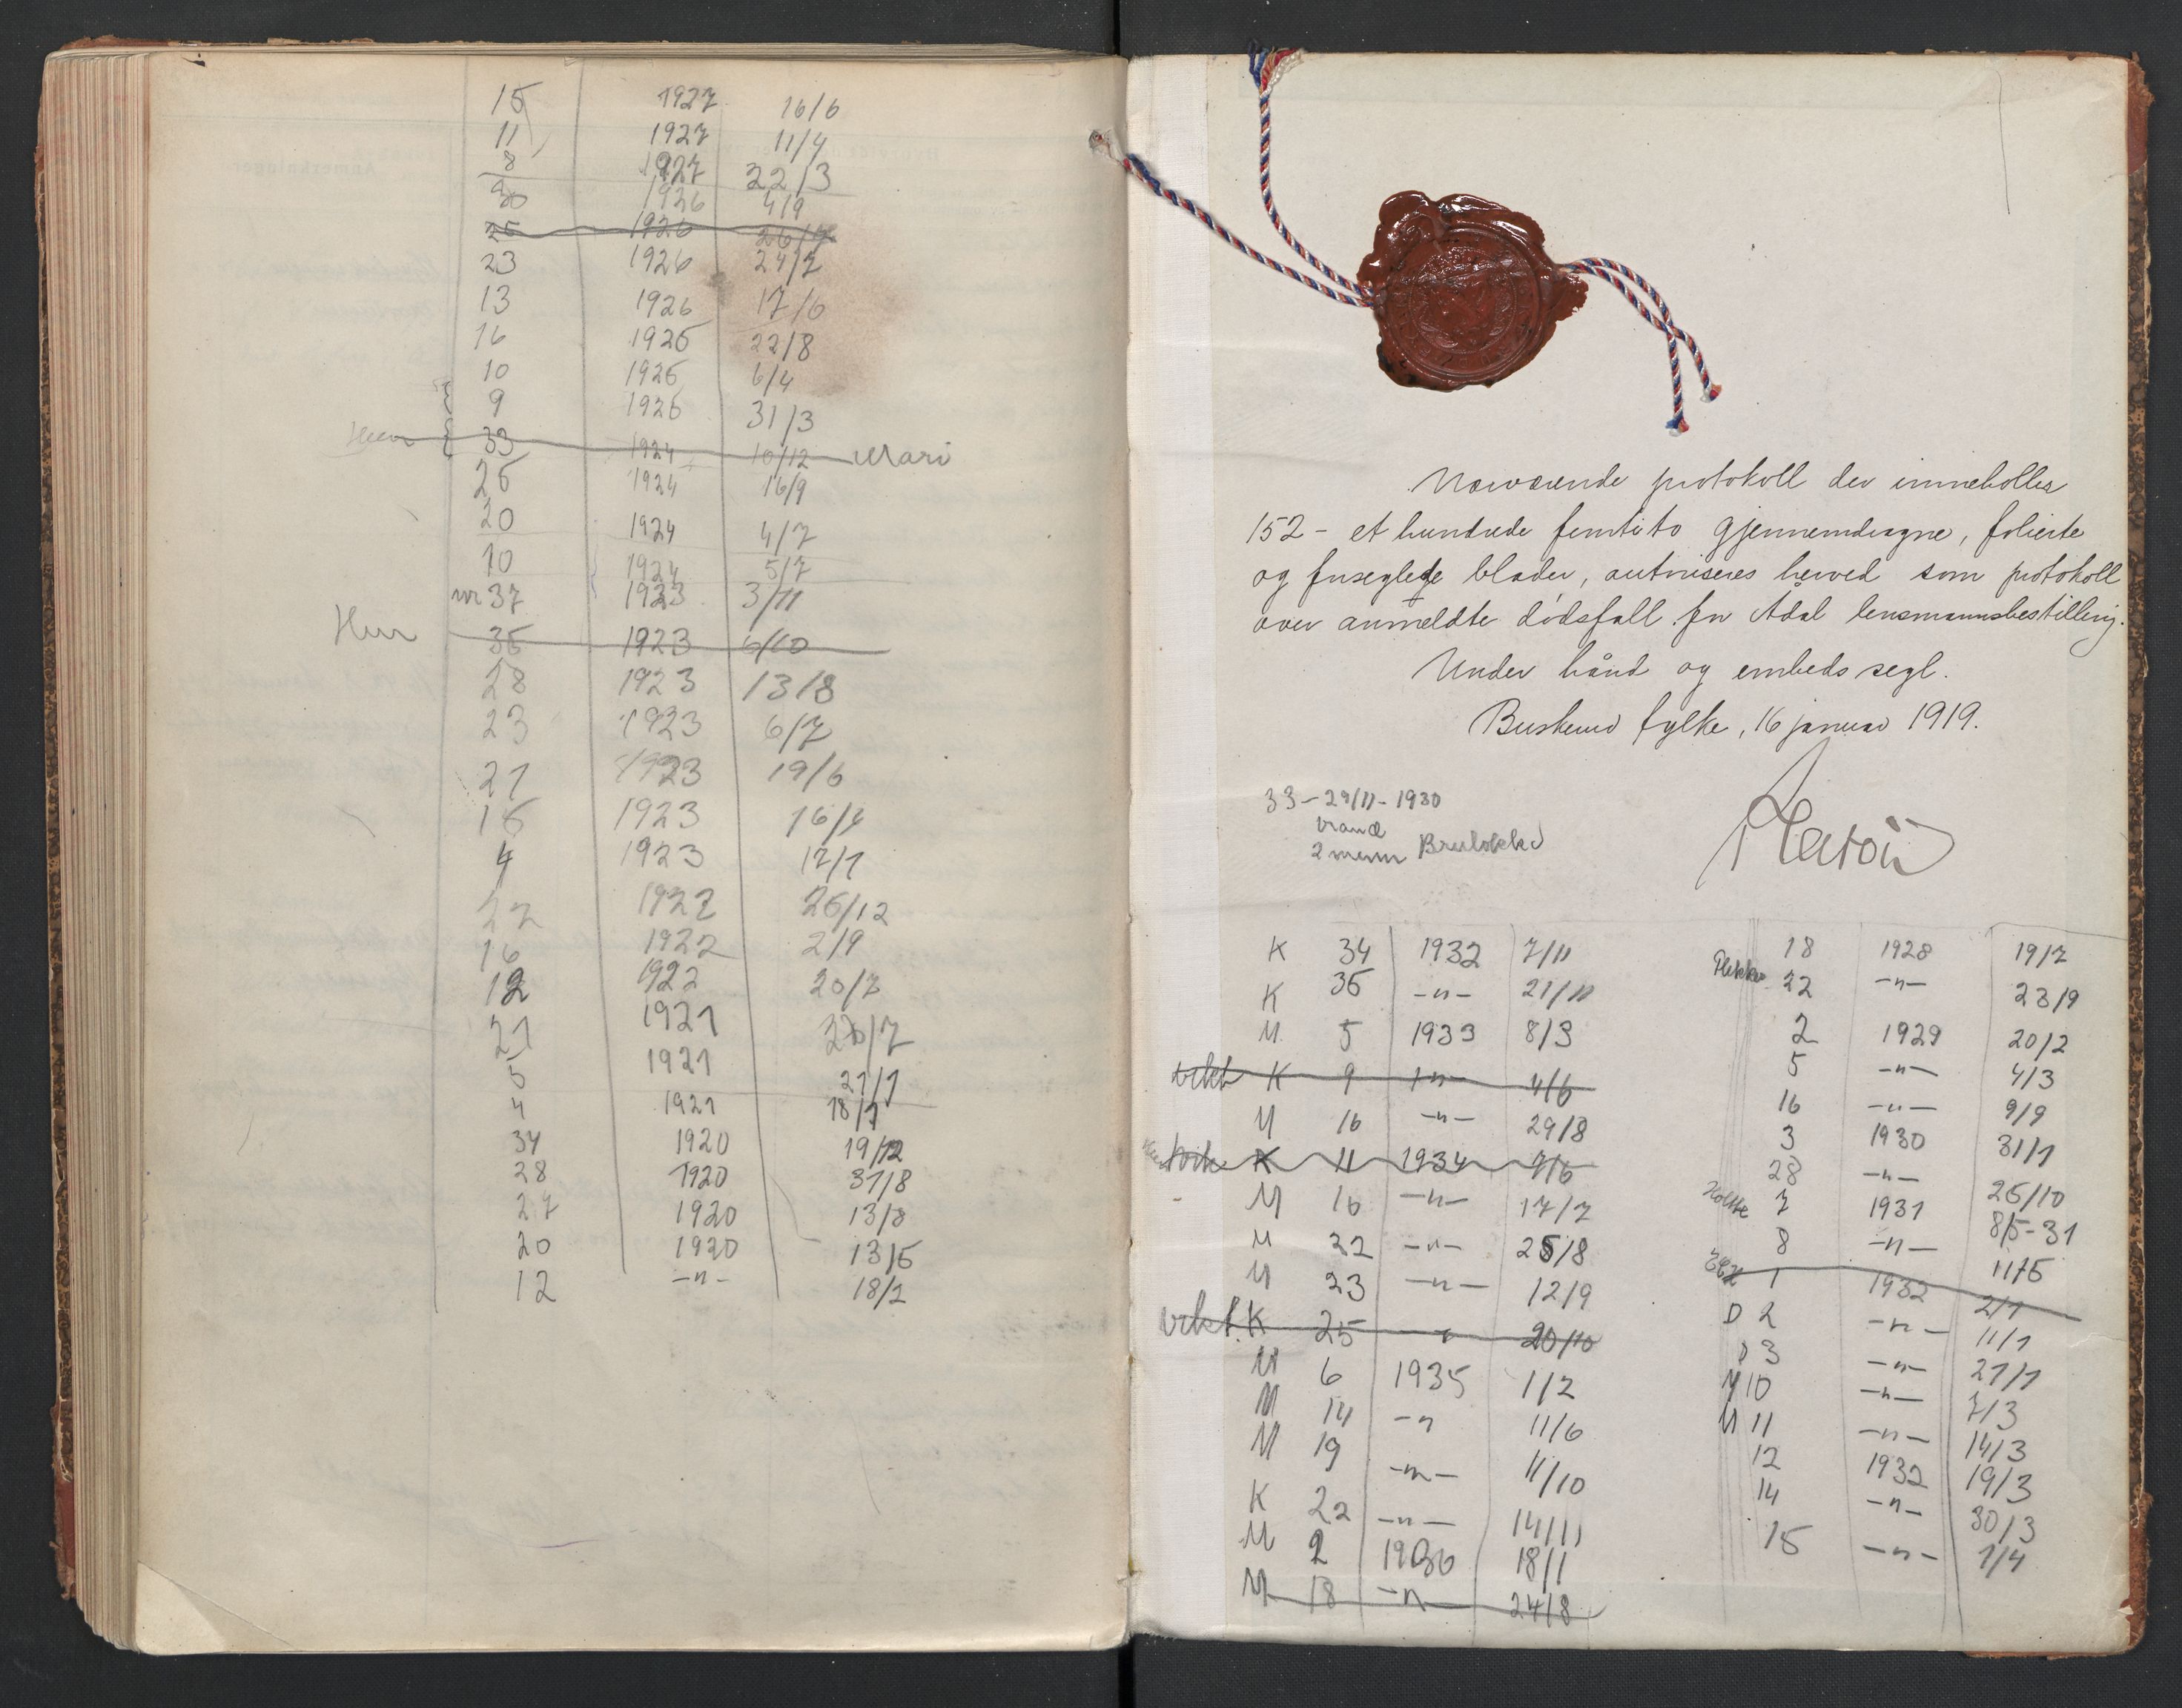 15 1927 16/6
11 1927 11/4
8 1927 22/3
30 1926 4/9
25 1926 26/7
23 1926 24/7
13 1926 17/6
16 1925 22/8
10 1925 6/4
9 1925 31/3
33 1924 10/12 Mari
25 1924 16/9
20 1924 4/7
10 1924 5/7
nr 37 1923 3/11
35 1923 6/10
28 1923 13/8
23 1923 6/7
21 1923 19/6
15 1923 16/4
4 1923 17/1
22 1922 26/12
16 1922 2/9
12 1922 20/7
21 1921
5 1921 21/1
4 1921 18/1
34 1920 19/12
28 1920 31/8
27 1920 13/8
20 1920 13/5
12 -"- 18/2
Nærværende protokoll der inneholder
152 - et hundrede femtito gjennemdragne, folierte
og forseglede blader, autoriseres herved som protokoll
over anmeldte dødsfall for Ådal lensmannsbestilling.
Under hånd og embeds segl.
Buskerud fylke, 16 januar 1919.
33 - 29/11 - 1930
2 menn
K 34 1932 7/11
K 35 -"- 21/11
M 5 1933 8/3
vekt K 9 -"- 4/6
M 16 -"- 29/8
K 11 1934 7/6
M 16 -"- 17/7
M 22 -"- 25/8
M 23 -"- 12/9
vekt. K 25 " 20/10
M 6 1935 1/2
M 14 -" 11/6
M 19 -"- 11/10
K 22 -"- 14/11
M 2 1936 18/1
M 18 -"- 24/8
18 1928 19/7
22 -"- 23/9
2 1929 20/2
5 -"- 4/3
16 -"- 9/9
3 1930 31/1
28 -"- 25/10
7 1931 8/5-31
8 -"- 11/5
1 1932 2/1
D 2 -"- 11/1
D 3 -"- 21/1
M 10 -"- 7/3
M 11 -"- 14/3
12 1932 19/3
14 -"- 30/3
15 -"- 1/4